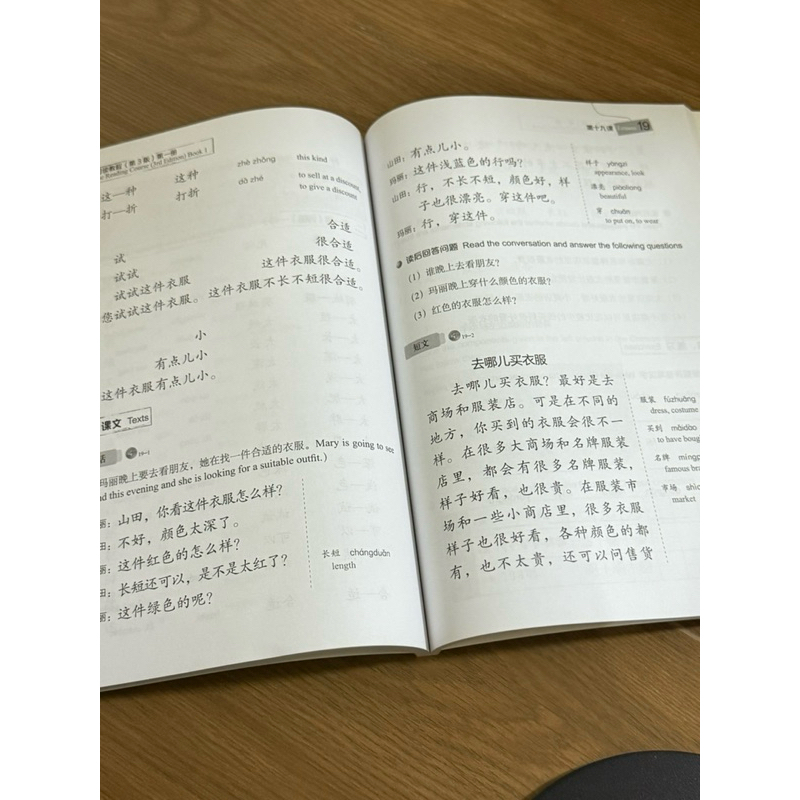 教程（第3版）第一册
Reading Course (3rd Edition) Book 1
这一种 这种 zhè zhǒng this kind
打一折 打折 dǎ zhé to sell at a discount,
to give a discount
试
试试
试试这件衣服
您试试这件衣服。
合适
很合适
这件衣服很合适。
这件衣服不长不短很合适。
小
有点儿小
这件衣服有点儿小。
课文 Texts
话 19-1
玛丽晚上要去看朋友，她在找一件合适的衣服。Mary is going to see
this evening and she is looking for a suitable outfit.）
丽：山田，你看这件衣服怎么样？
田：不好，颜色太深了。
丽：这件红色的怎么样？
田：长短还可以，是不是太红了？
丽：这件绿色的呢？
长短 chángduǎn
length
第十九课 19
山田：有点儿小。
玛丽：这件浅蓝色的行吗？
山田：行，不长不短，颜色好，样
子也很漂亮。穿这件吧。
玛丽：行，穿这件。
样子 yàngzi
appearance, look
漂亮 piàoliang
beautiful
穿 chuān
to put on, to wear
读后回答问题 Read the conversation and answer the following questions
（1）谁晚上去看朋友？
（2）玛丽晚上穿什么颜色的衣服？
（3）红色的衣服怎么样？
短文 19-2
去哪儿买衣服
去哪儿买衣服？最好是去
商场和服装店。可是在不同的
地方，你买到的衣服会很不一
样。在很多大商场和名牌服装
店里，都会有很多名牌服装，
样子好看，也很贵。在服装市
场和一些小商店里，很多衣服
样子也很好看，各种颜色的都
有，也不太贵，还可以问售货
服装 fúzhuāng
dress, costume
买到 mǎidào
to have bought
名牌
famous
市场
market